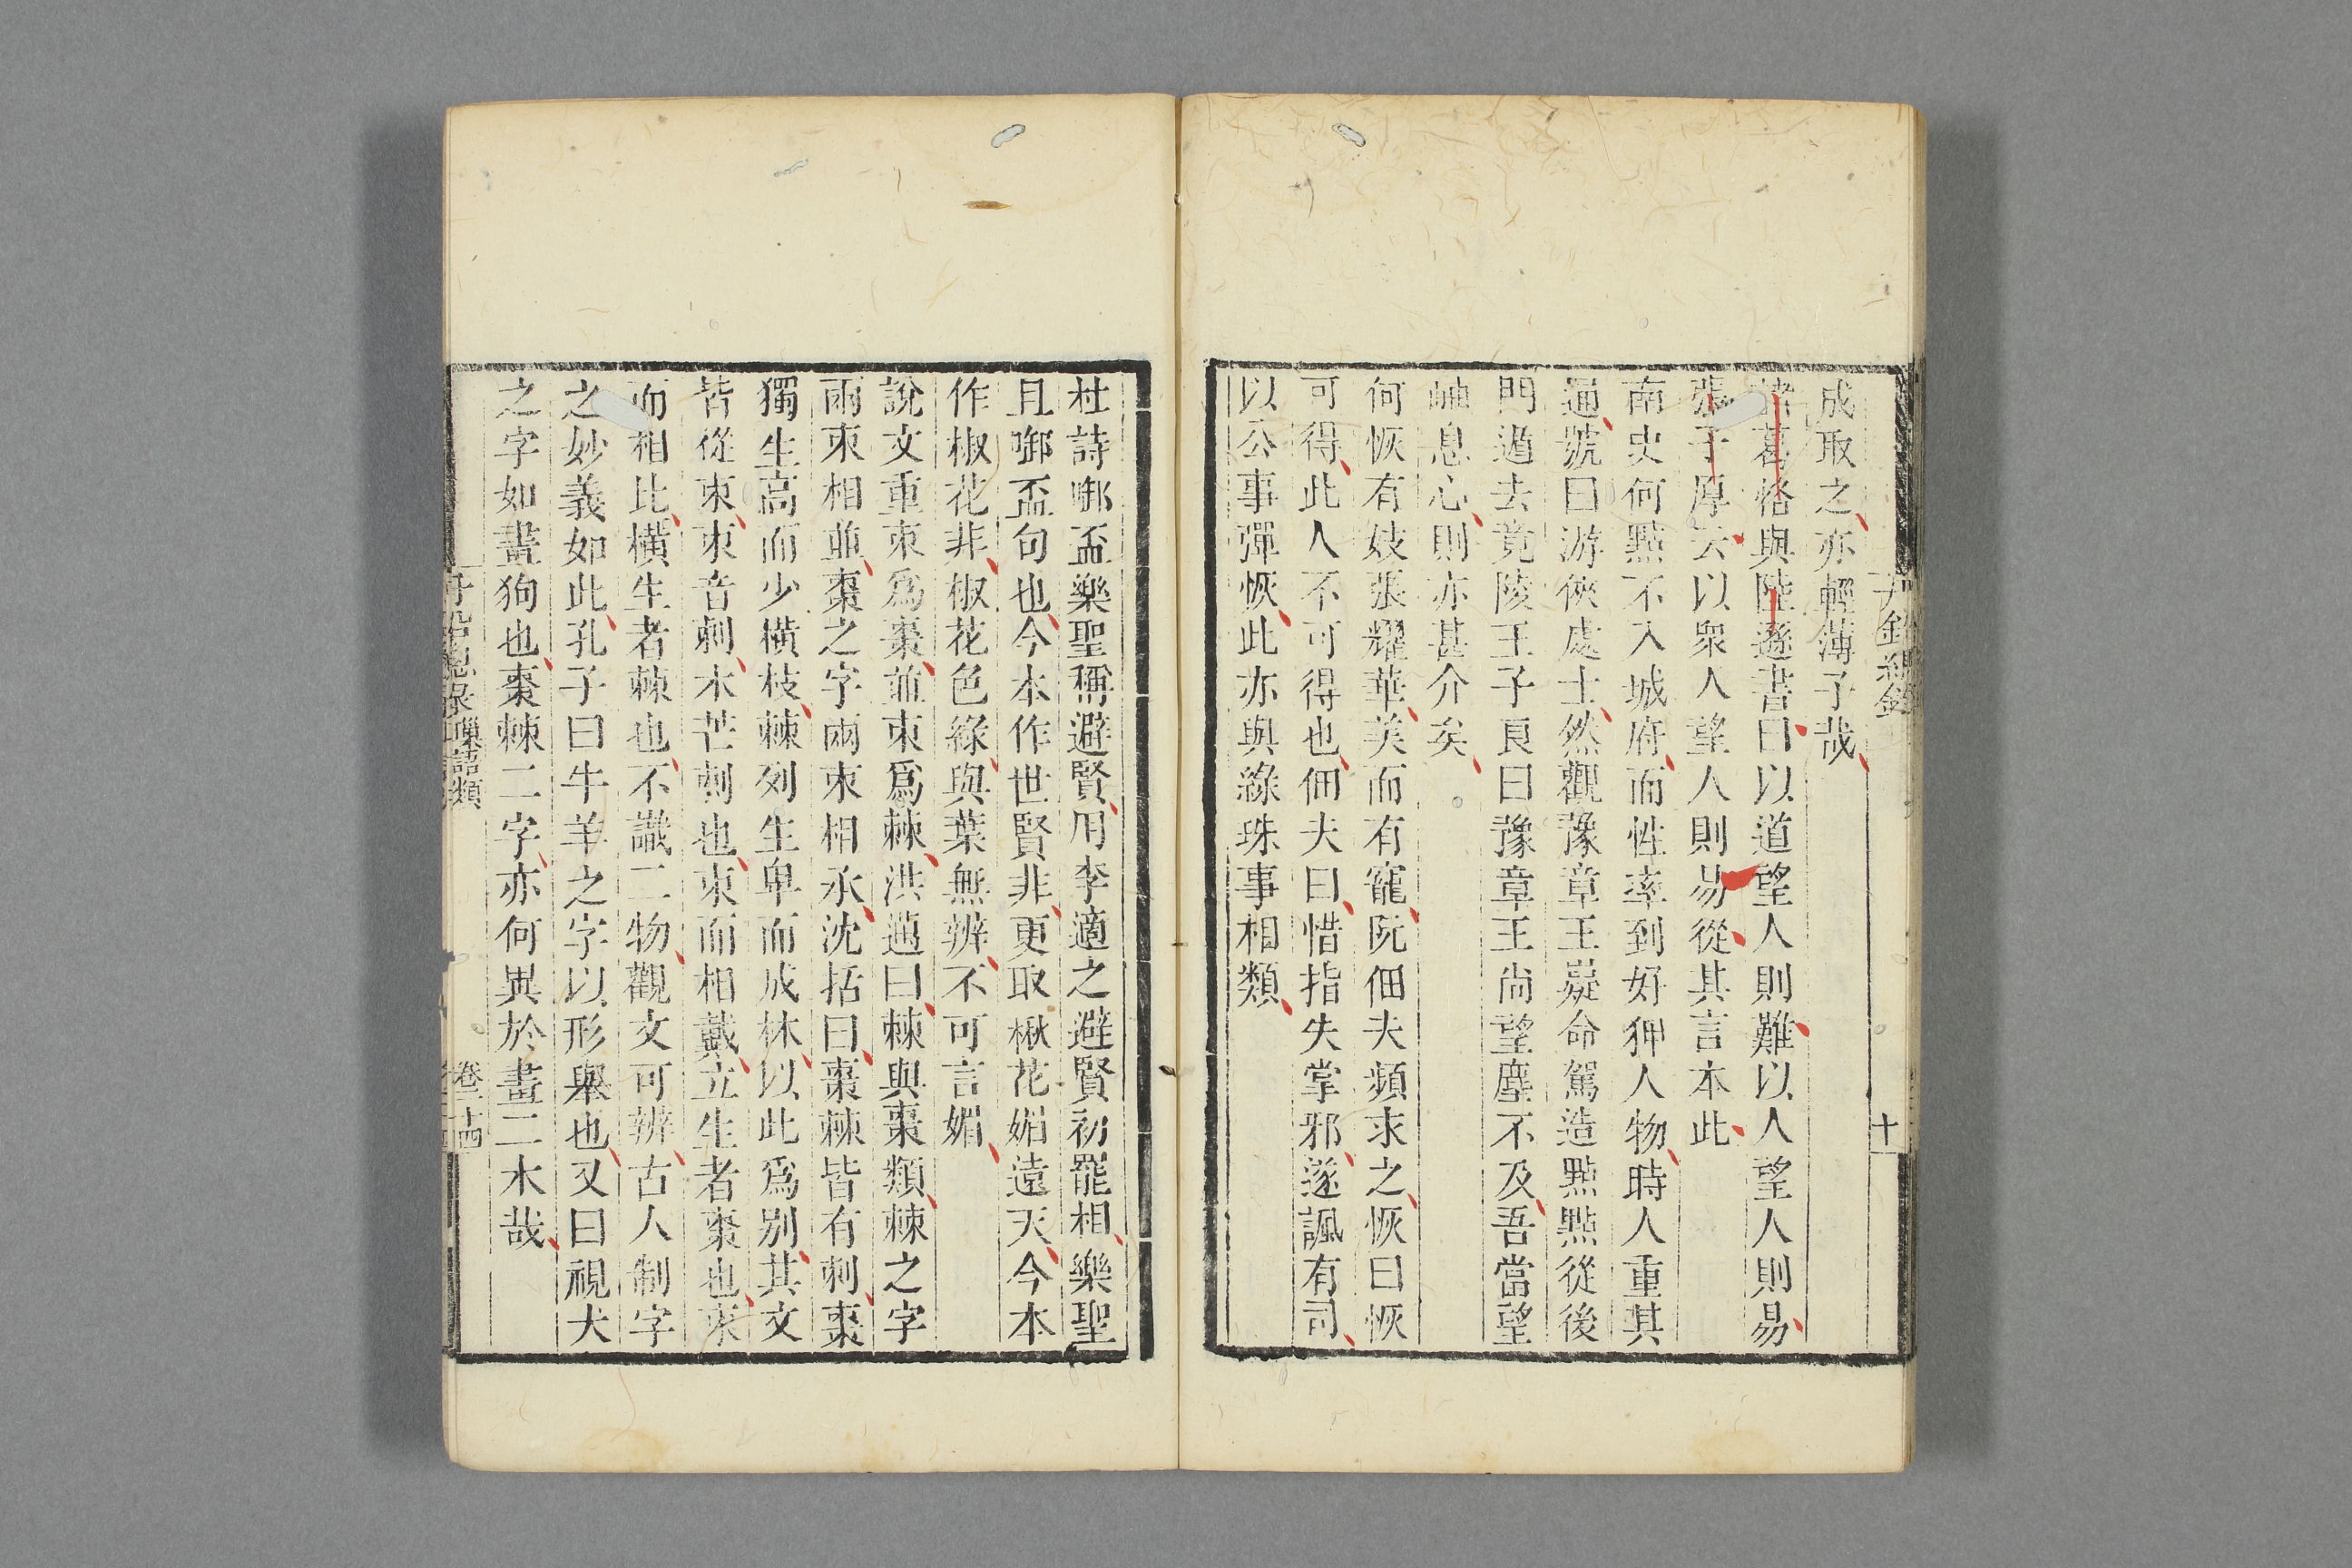 十
成取之亦輕薄子哉
諸葛恪與陸遜書曰以道望人則難以人望人則易
張子厚云以衆人望人則易從其言本此
南史何點不入城府而性率到好狎人物時人重其
通號曰游俠處士然觀豫章王嶷命駕造點點從後
門遁去竟陵王子良曰豫章王尚望塵不及吾當望
岫息心則亦甚介矣
何恢有妓張耀華美而有寵阮佃夫頻求之恢曰恢
可得此人不可得也佃夫曰惜指失掌邪遂諷有司
以公事彈恢此亦與綠珠事相類
杜詩啣盃樂聖稱避賢用李適之避賢初罷相樂聖
且啣盃句也今本作世賢非更取楸花媚遠天今本
作椒花非椒花色綠與葉無辨不可言媚
說文重朿爲棗並朿爲棘洪邁曰棘與棗類棘之字
兩朿相並棗之字兩朿相承沈括曰棗棘皆有刺棗
獨生高而少橫枝棘列生卑而成林以此爲别其文
皆從朿朿音刺木芒刺也朿而相戴立生者棗也朿
而相比橫生者棘也不識二物觀文可辨古人制字
之妙義如此孔子曰牛羊之字以形舉也又曰視犬
之字如畫狗也棗棘二字亦何異於畫二木哉
璅語類
卷二十四